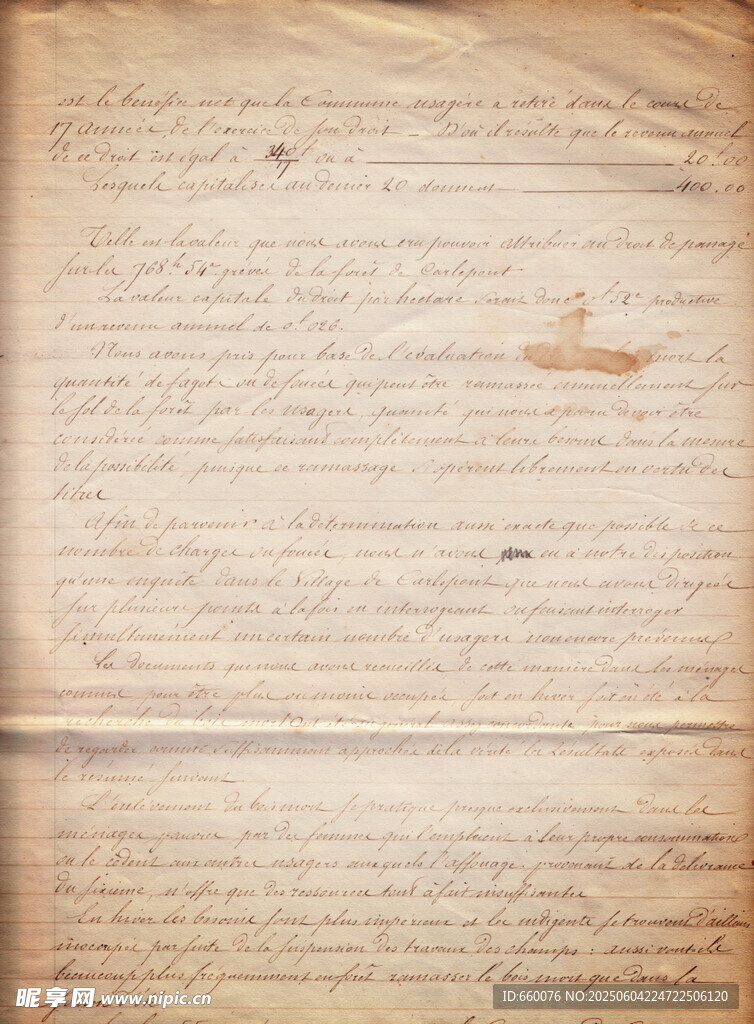 est le bénéfice net que la Commune usagère a retiré dans le cours de
17 années, de l'exercice de son droit _ D'où il résulte que le revenu annuel
de ce droit est égal à 340f/17 ou à 20f.00
Lesquels capitalisés au denier 20 donnent 400.00
Telle est la valeur que nous avons cru pouvoir attribuer au droit de panage
sur les 768h 54a grevés de la forêt de Carlepont
La valeur capitale du droit par hectare serait donc 0f 52c productive
d'un revenu annuel de 0f.026.
Nous avons pris pour base de l'évaluation du mort la
quantité de fagots ou de fouées qui peut être ramassée annuellement sur
le sol de la forêt par les usagers, quantité qui nous a paru devoir être
considérée comme satisfaisant complètement à leurs besoins dans la mesure
de la possibilité, puisque ce ramassage s'opèrent librement en vertu des
titres
Afin de parvenir à la détermination aussi exacte que possible de ce
nombre de charges ou fouées, nous n'avons eu à notre disposition
qu'une enquête dans le Village de Carlepont que nous avons dirigée
sur plusieurs points à la fois en interrogeant ou faisant interroger
simultanément un certain nombre d'usagers non encore prévenus
Les documents que nous avons recueillis de cette manière dans les ménages
connus pour être plus ou moins occupés soit en hiver soit en été à la
recherche du bois mort ont été en général assez concordants pour nous permettre
de regarder comme suffisamment approchés de la vérité les résultats exposés dans
le résumé suivant
L'enlèvement du bois mort se pratique presque exclusivement dans les
ménages pauvres, par des femmes qui l'emploient à leur propre consommation
ou le cèdent aux autres usagers auxquels l'affouage provenant de la délivrance
du sixième, n'offre que des ressources tout à fait insuffisantes
En hiver les besoins sont plus impérieux et les indigents se trouvent d'ailleurs
inoccupés par suite de la suspension des travaux des champs : aussi vont-ils
beaucoup plus fréquemment en forêt ramasser le bois mort que dans la
昵享网 www.nipic.cn
ID:660076 NO:20250604224722506120